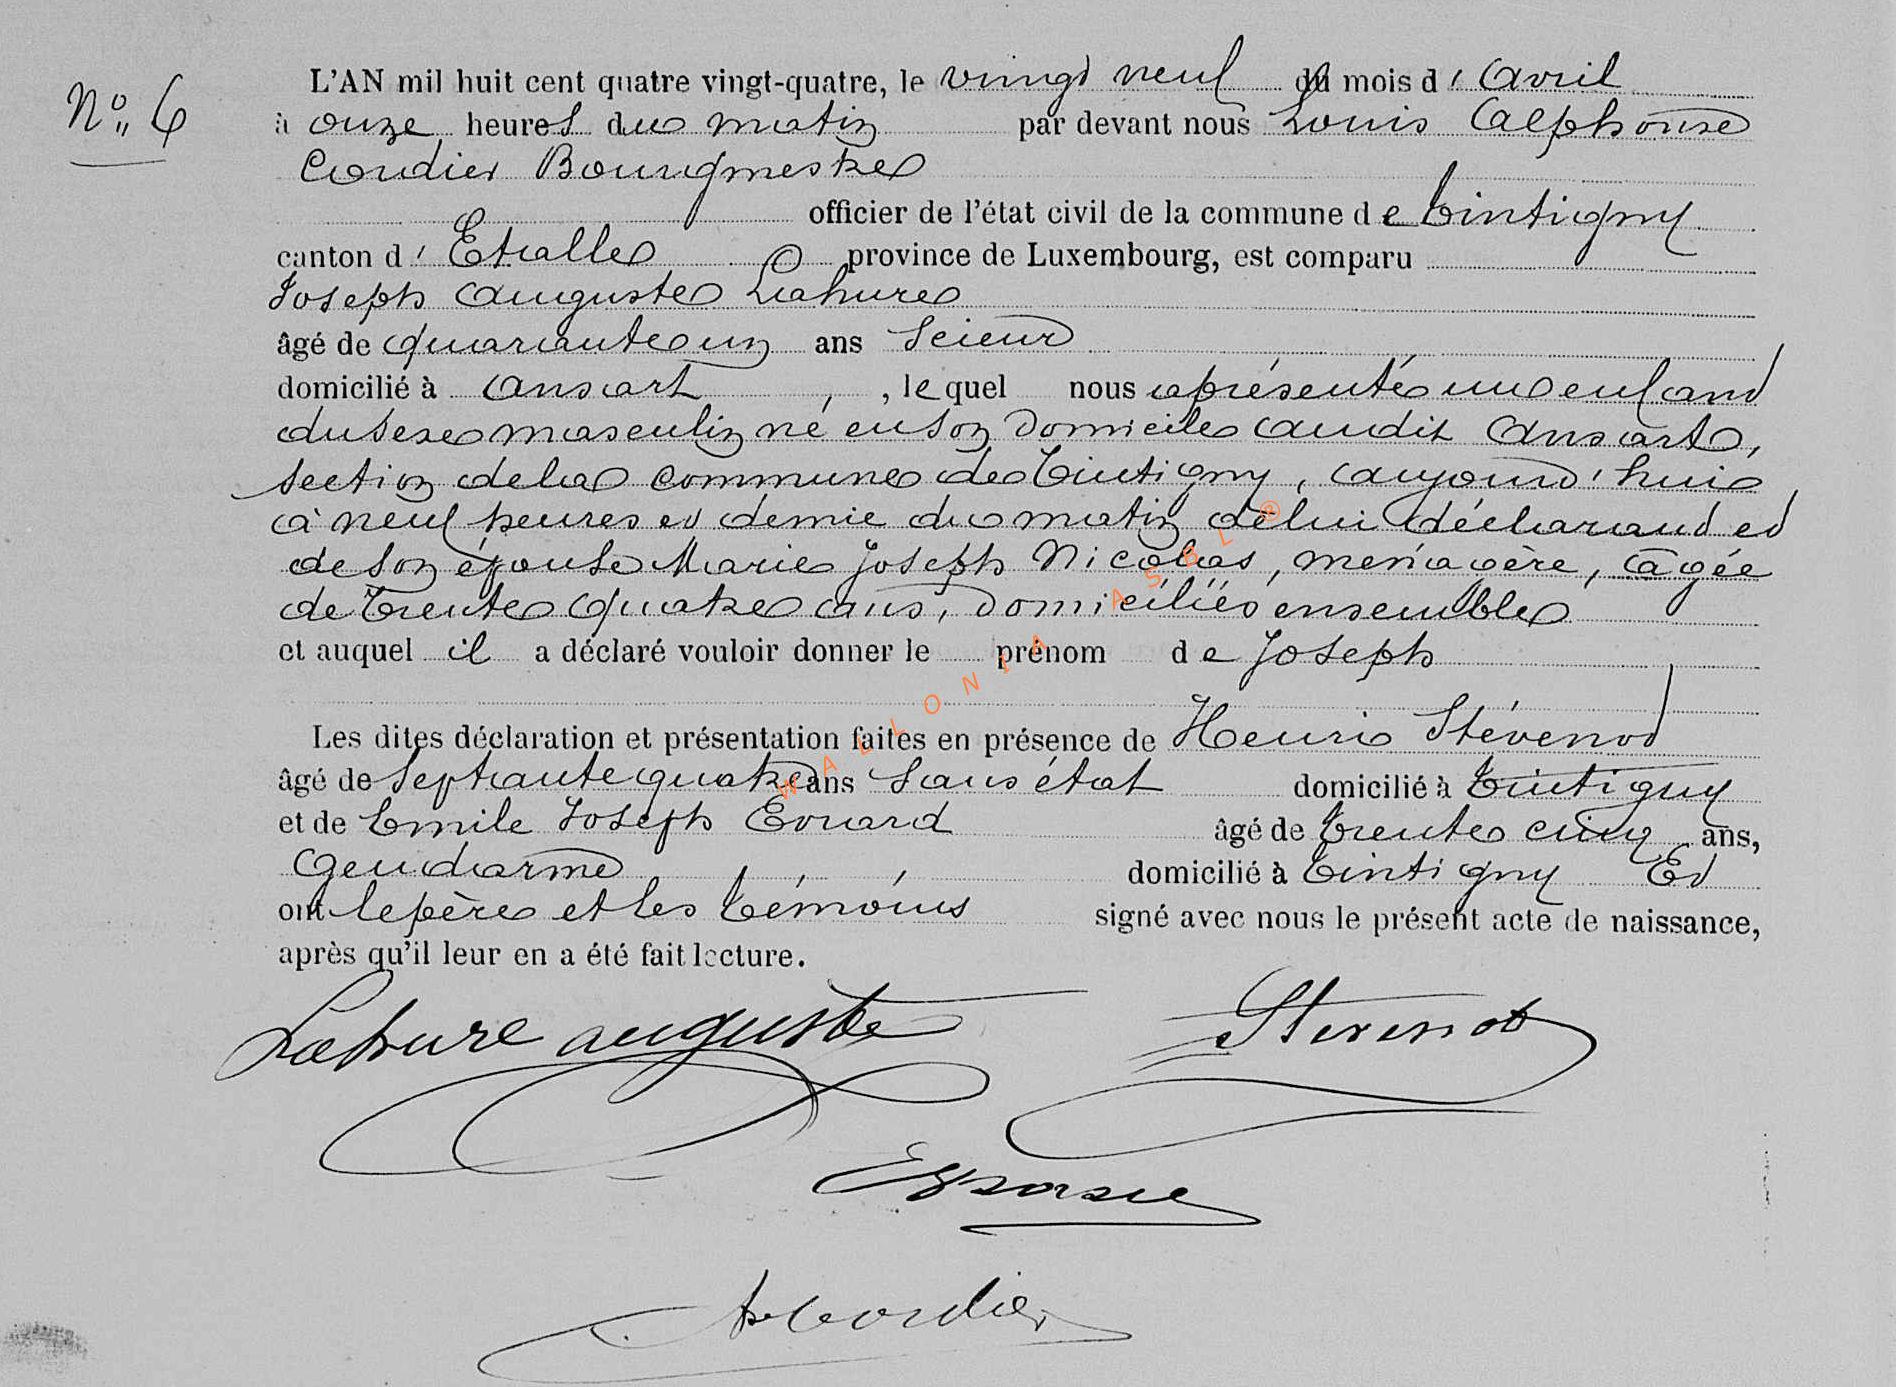 N° 6
L'AN mil huit cent quatre vingt-quatre, le vingt neuf du mois d'Avril
à onze heures du matin par devant nous Louis Alphonse
Cordier Bourgmestre
officier de l'état civil de la commune de Tintigny
canton d'Etalle province de Luxembourg, est comparu
Joseph Auguste Lahure
âgé de quarante un ans Scieur
domicilié à Ansart, lequel nous a présenté un enfant
du sexe masculin né en son domicile audit Ansart,
section de la commune de Tintigny, aujourd'hui
à neuf heures et demie du matin de lui déclarant et
de son épouse Marie Joseph Nicolas, ménagère, âgée
de trente quatre ans, domiciliés ensemble
et auquel il a déclaré vouloir donner le prénom de Joseph
Les dites déclaration et présentation faites en présence de Henri Stévenot
âgé de septante quatre ans Sans état domicilié à Tintigny
et de Emile Joseph Evrard âgé de trente cinq ans,
Gendarme domicilié à Tintigny Et
ont le père et les témoins signé avec nous le présent acte de naissance,
après qu'il leur en a été fait lecture.
Lahure auguste Stevenot
A Cordier
WALLONIA ASBL ®